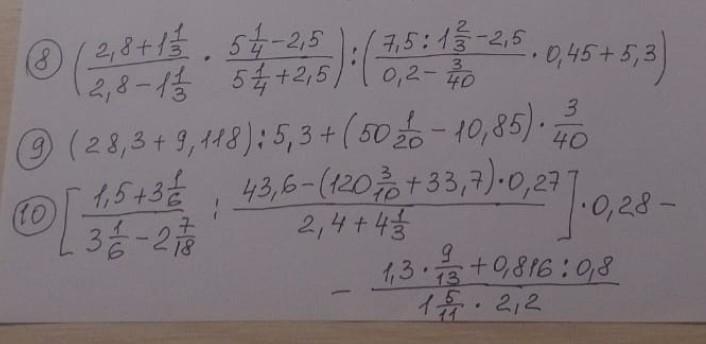 ⑧ ((2,8+1 1/3)/(2,8-1 1/3) · (5 1/4-2,5)/(5 1/4+2,5)) : ((7,5:1 2/3-2,5)/(0,2-3/40) · 0,45+5,3)
⑨ (28,3+9,118):5,3+(50 1/20-10,85)·3/40
⑩ [(1,5+3 1/6)/(3 1/6-2 7/18) : (43,6-(120 3/10+33,7)·0,27)/(2,4+4 1/3)]·0,28-
- (1,3·9/13+0,816:0,8)/(1 5/11·2,2)